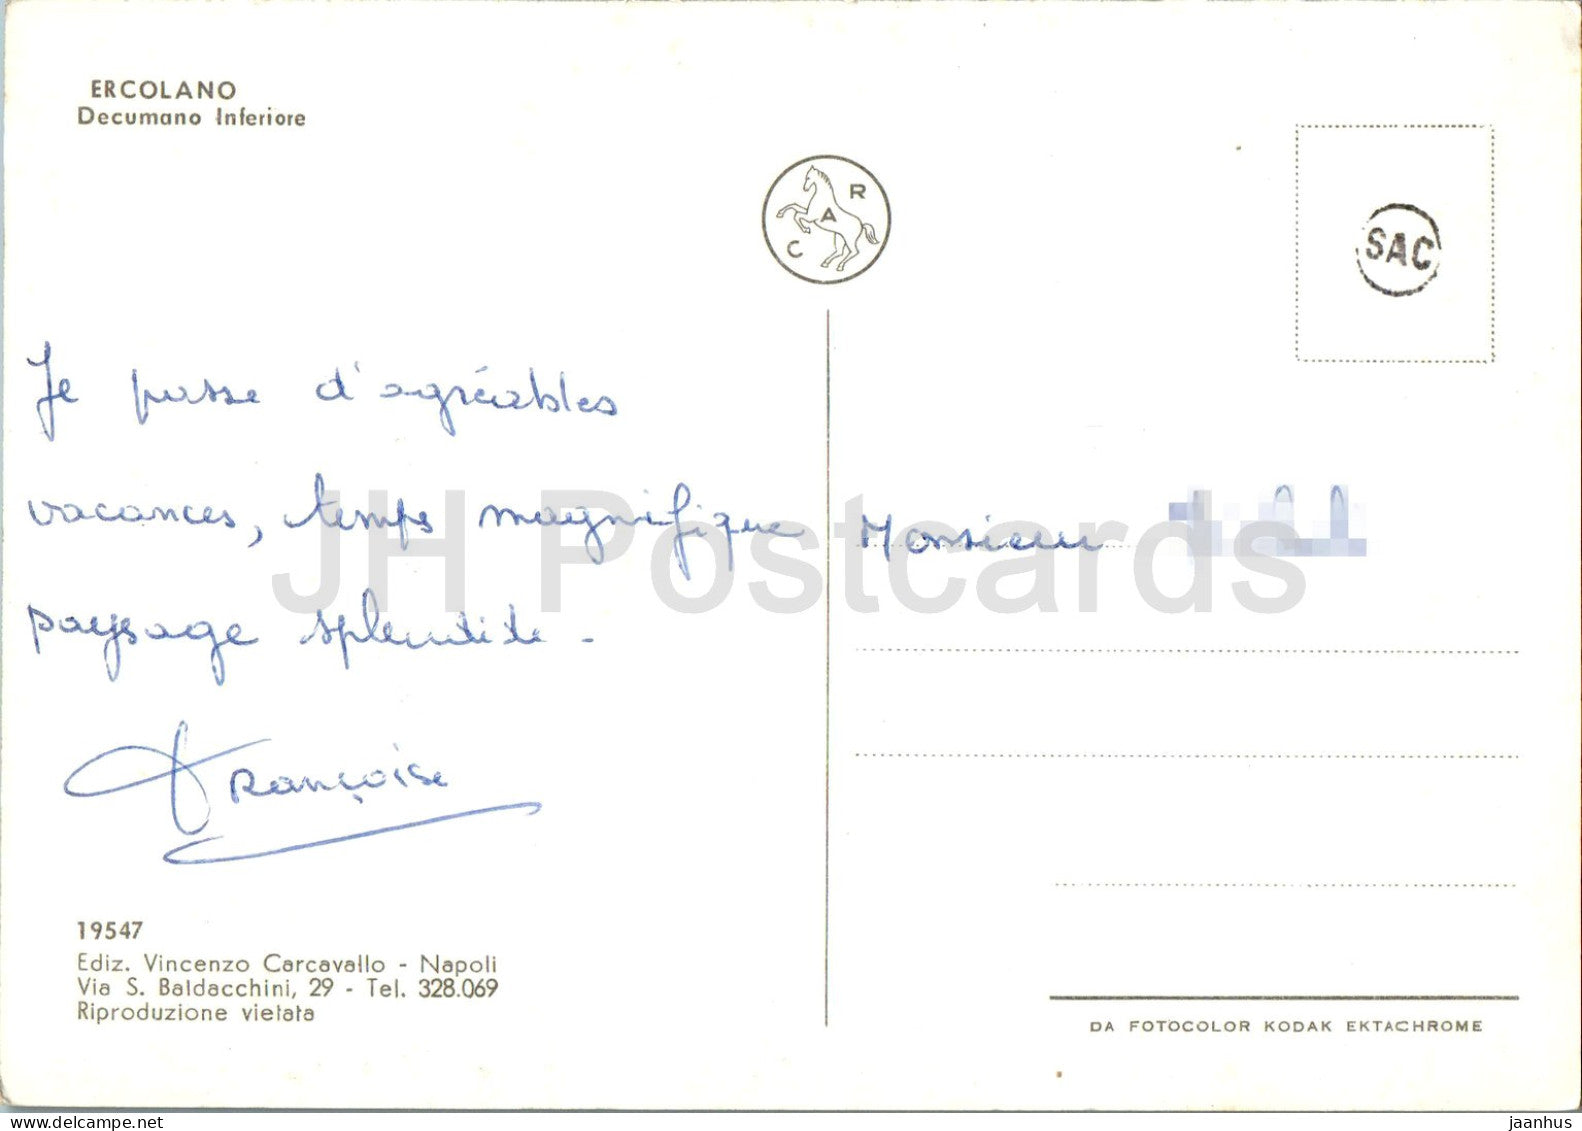 ERCOLANO
Decumano Inferiore
C A R
SAC
Je passe d'agréables
vacances, temps magnifique
paysage splendide -
Françoise
Monsieur
19547
Ediz. Vincenzo Carcavallo - Napoli
Via S. Baldacchini, 29 - Tel. 328.069
Riproduzione vietata
DA FOTOCOLOR KODAK EKTACHROME
JH Postcards
delcampe.net
jaanhus